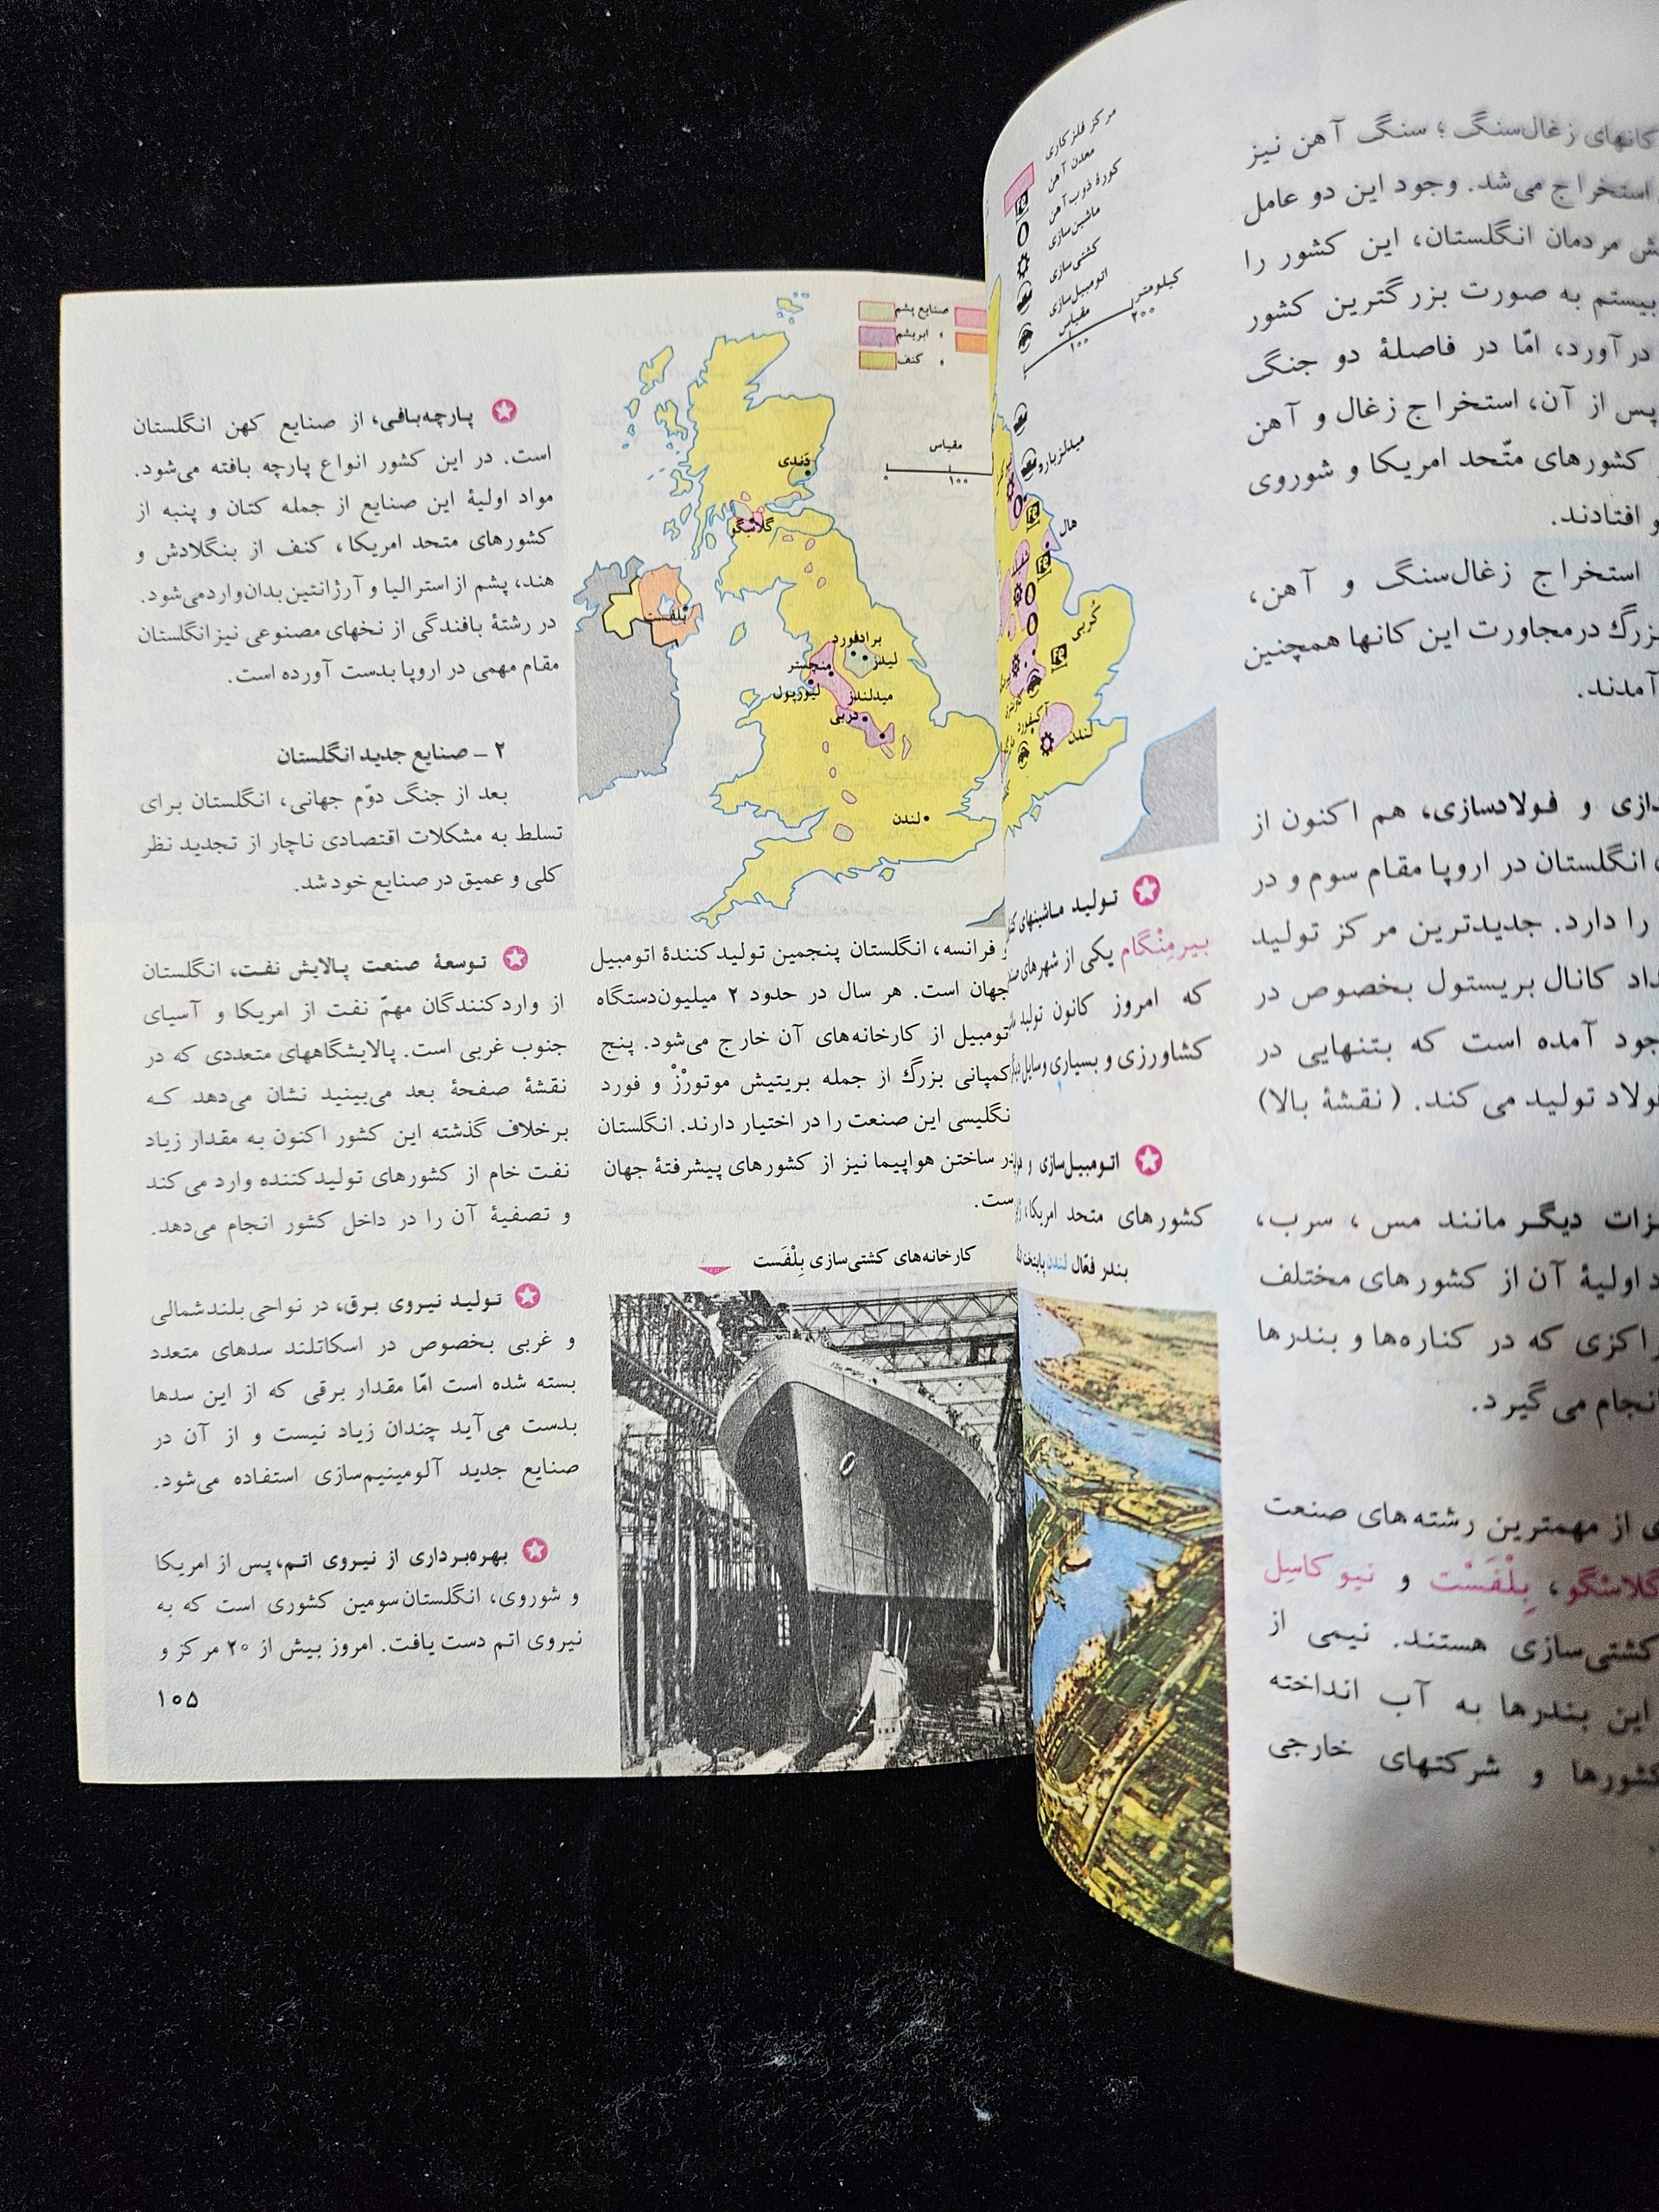 کانهای زغال‌سنگ ؛ سنگ آهن نیز
استخراج می‌شد. وجود این دو عامل
مردمان انگلستان، این کشور را
بیستم به صورت بزرگترین کشور
درآورد، امّا در فاصلهٔ دو جنگ
پس از آن، استخراج زغال و آهن
کشورهای متّحد امریکا و شوروی
افتادند.
استخراج زغال‌سنگ و آهن،
بزرگ درمجاورت این کانها همچنین
آمدند.
و فولادسازی، هم اکنون از
انگلستان در اروپا مقام سوم و در
را دارد. جدیدترین مرکز تولید
کانال بریستول بخصوص در
آمده است که بتنهایی در
فولاد تولید می‌کند. (نقشهٔ بالا)
دیگر مانند مس ، سرب،
اولیهٔ آن از کشورهای مختلف
که در کناره‌ها و بندرها
انجام می‌گیرد.
از مهمترین رشته‌های صنعت
گلاسگو، بِلْفَسْت و نیوکاسِل
کشتی‌سازی هستند. نیمی از
این بندرها به آب انداخته
کشورها و شرکتهای خارجی
مرکز فلزکاری
معدن آهن
کورهٔ ذوب آهن
ماشین‌سازی
کشتی‌سازی
اتومبیل‌سازی
مقیاس
کیلومتر
۱۰۰
۲۰۰
میدلزبارو
هال
کُربی
لندن
تولید ماشینهای
بیرمنْگام یکی از شهرهای
که امروز کانون تولید
کشاورزی و بسیاری وسایل
اتومبیل‌سازی و
کشورهای متحد امریکا،
بندر فعّال لندن پایتخت
صنایع پشم
ابریشم
کنف
مقیاس
۱۰۰
دَندی
گلاسگو
بلفست
برادفورد
لیدز
منچستر
لیورپول
میدلندز
دربی
لندن
و فرانسه، انگلستان پنجمین تولیدکنندهٔ اتومبیل
جهان است. هر سال در حدود ۲ میلیون‌دستگاه
اتومبیل از کارخانه‌های آن خارج می‌شود. پنج
کمپانی بزرگ از جمله بریتیش موتورْزْ و فورد
انگلیسی این صنعت را در اختیار دارند. انگلستان
در ساختن هواپیما نیز از کشورهای پیشرفتهٔ جهان
است.
کارخانه‌های کشتی‌سازی بِلْفَست
پارچه‌بافی، از صنایع کهن انگلستان
است. در این کشور انواع پارچه بافته می‌شود.
مواد اولیهٔ این صنایع از جمله کتان و پنبه از
کشورهای متحد امریکا، کنف از بنگلادش و
هند، پشم از استرالیا و آرژانتین بدان‌واردمی‌شود.
در رشتهٔ بافندگی از نخهای مصنوعی نیز انگلستان
مقام مهمی در اروپا بدست آورده است.
۲ ــ صنایع جدید انگلستان
بعد از جنگ دوّم جهانی، انگلستان برای
تسلط به مشکلات اقتصادی ناچار از تجدید نظر
کلی و عمیق در صنایع خود شد.
توسعهٔ صنعت پالایش نفت، انگلستان
از واردکنندگان مهمّ نفت از امریکا و آسیای
جنوب غربی است. پالایشگاههای متعددی که در
نقشهٔ صفحهٔ بعد می‌بینید نشان می‌دهد که
برخلاف گذشته این کشور اکنون به مقدار زیاد
نفت خام از کشورهای تولیدکننده وارد می‌کند
و تصفیهٔ آن را در داخل کشور انجام می‌دهد.
تولید نیروی برق، در نواحی بلندشمالی
و غربی بخصوص در اسکاتلند سدهای متعدد
بسته شده است امّا مقدار برقی که از این سدها
بدست می‌آید چندان زیاد نیست و از آن در
صنایع جدید آلومینیم‌سازی استفاده می‌شود.
بهره‌برداری از نیروی اتم، پس از امریکا
و شوروی، انگلستان‌سومین کشوری است که به
نیروی اتم دست یافت. امروز بیش از ۲۰ مرکز و
۱۰۵